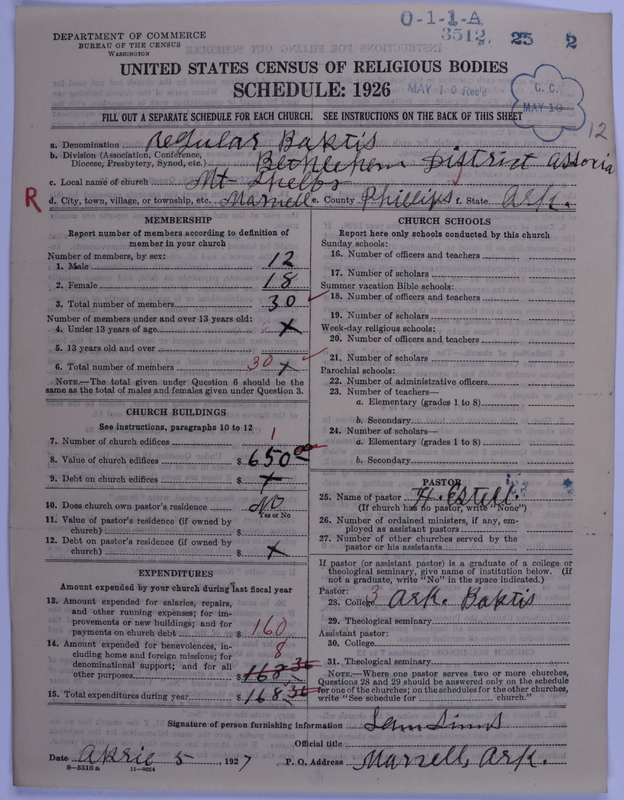 O-1-1-A
3512. 25 2
DEPARTMENT OF COMMERCE
BUREAU OF THE CENSUS
WASHINGTON
UNITED STATES CENSUS OF RELIGIOUS BODIES
SCHEDULE: 1926
MAY 10 Rec'd
C. C.
MAY 10
12
FILL OUT A SEPARATE SCHEDULE FOR EACH CHURCH. SEE INSTRUCTIONS ON THE BACK OF THIS SHEET
a. Denomination Regular Baptis
b. Division (Association, Conference,
Diocese, Presbytery, Synod, etc.) Bethlehem District Associa
c. Local name of church Mt Shelbs
R
d. City, town, village, or township, etc. Marvell e. County Phillips f. State Ark.
MEMBERSHIP
Report number of members according to definition of
member in your church
Number of members, by sex:
1. Male 12
2. Female 18
3. Total number of members 30
Number of members under and over 13 years old:
4. Under 13 years of age x
5. 13 years old and over
6. Total number of members 30 x
NOTE.—The total given under Question 6 should be the
same as the total of males and females given under Question 3.
CHURCH BUILDINGS
See instructions, paragraphs 10 to 12
7. Number of church edifices 1
8. Value of church edifices $ 650
9. Debt on church edifices $ x
10. Does church own pastor's residence No
Yes or No
11. Value of pastor's residence (if owned by
church) $
12. Debt on pastor's residence (if owned by
church) $ x
EXPENDITURES
Amount expended by your church during last fiscal year
13. Amount expended for salaries, repairs,
and other running expenses; for im-
provements or new buildings; and for
payments on church debt $ 160
14. Amount expended for benevolences, in-
cluding home and foreign missions; for
denominational support; and for all
other purposes $ 8 168 36
15. Total expenditures during year $ 168 36
CHURCH SCHOOLS
Report here only schools conducted by this church
Sunday schools:
16. Number of officers and teachers
17. Number of scholars
Summer vacation Bible schools:
18. Number of officers and teachers
19. Number of scholars
Week-day religious schools:
20. Number of officers and teachers
21. Number of scholars
Parochial schools:
22. Number of administrative officers
23. Number of teachers—
a. Elementary (grades 1 to 8)
b. Secondary
24. Number of scholars—
a. Elementary (grades 1 to 8)
b. Secondary
PASTOR
25. Name of pastor H. Estell.
(If church has no pastor, write "None")
26. Number of ordained ministers, if any, em-
ployed as assistant pastors
27. Number of other churches served by the
pastor or his assistants
If pastor (or assistant pastor) is a graduate of a college or
theological seminary, give name of institution below. (If
not a graduate, write "No" in the space indicated.)
Pastor:
28. College 3 Ark. Baptis
29. Theological seminary
Assistant pastor:
30. College
31. Theological seminary
NOTE.—Where one pastor serves two or more churches,
Questions 28 and 29 should be answered only on the schedule
for one of the churches; on the schedules for the other churches,
write "See schedule for church."
Signature of person furnishing information Sam Sims
Official title
Date Aprie 5, 1927 P. O. Address Marvell, Ark.
8—5318 a 11—9024